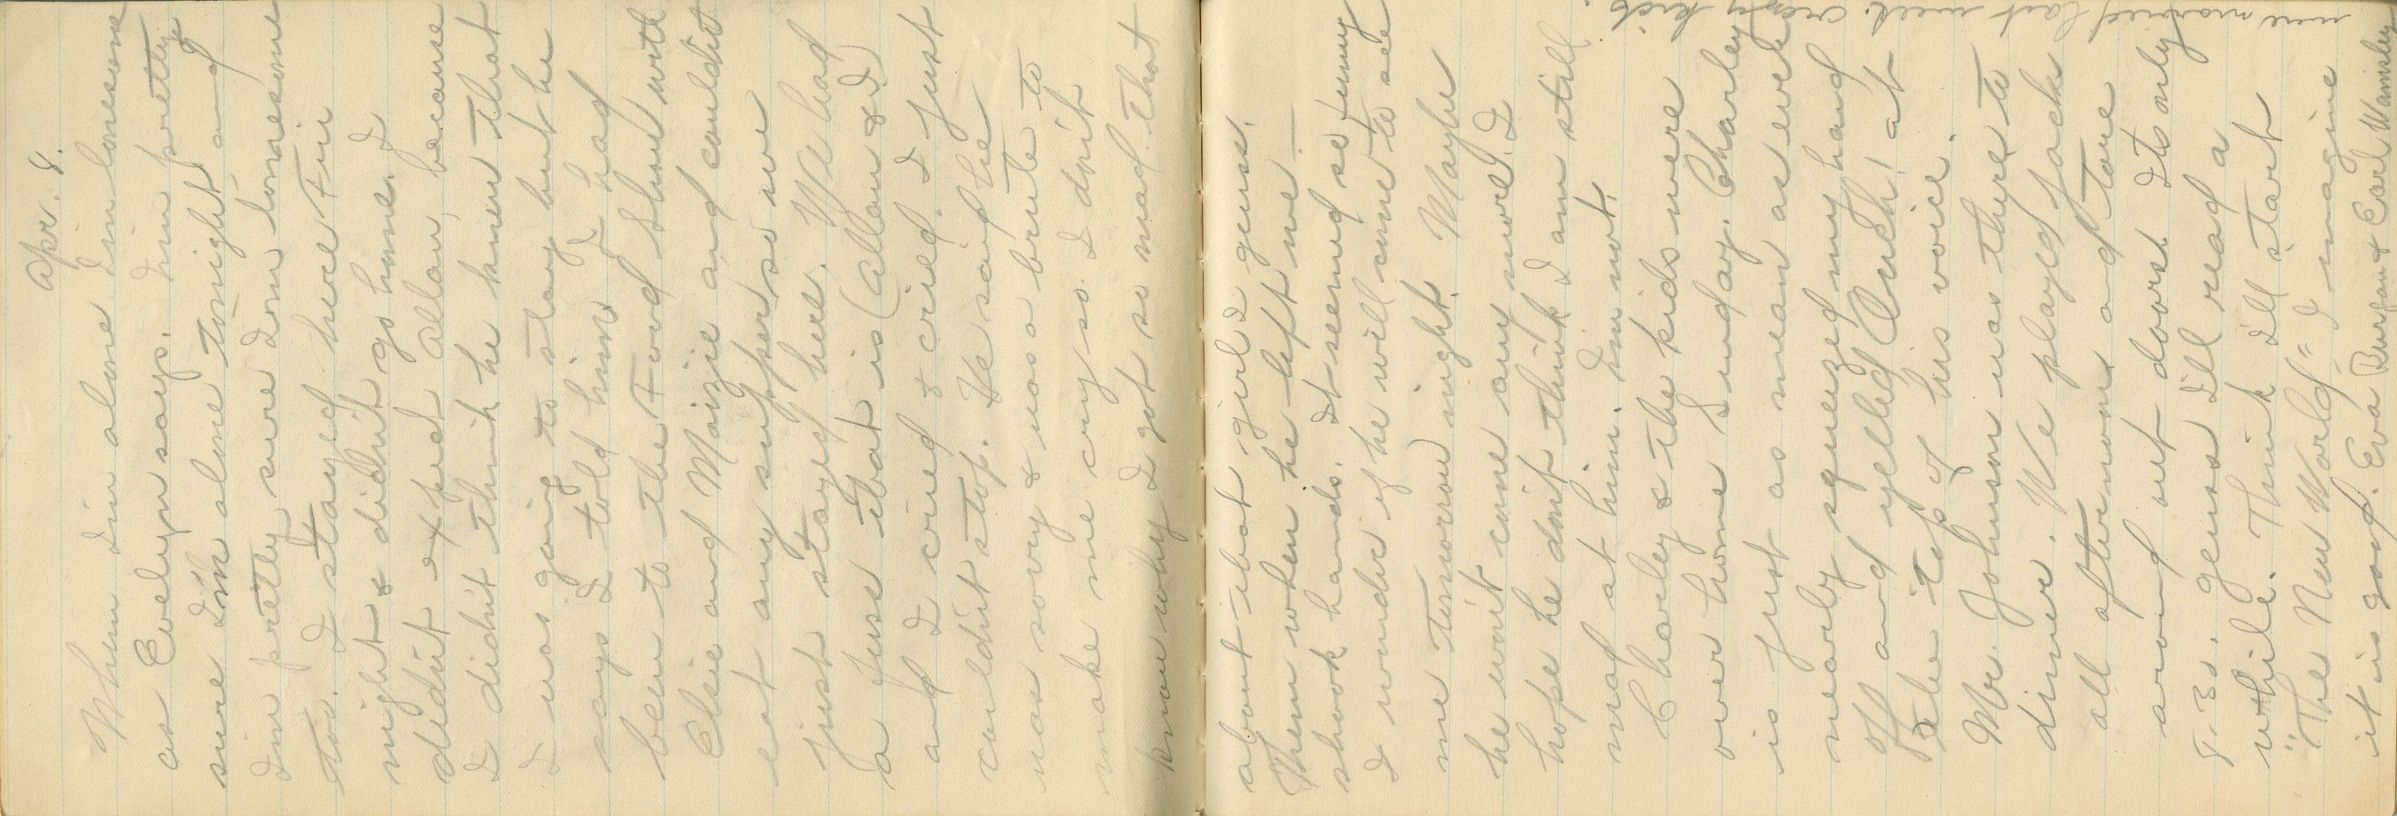 Apr. 8.
When I'm alone I'm lonesome
as Evelyn says. I'm pretty
sure I'm alone tonight and
I'm pretty sure I'm lonesome
too. I stayed here Fri
night & didn't go home. I
didn't expect Allan, because
I didn't think he knew that
I was going to stay but he
says I told him I had
been to the Ford Show with
Elsie and Maizie and couldn't
eat any supper so we
just stayed here. We had
a fuss that is (Allan & I)
and I cried & cried. I just
couldn't stop. He said he
was sorry & was a brute to
make me cry so. I don't
know why I got so mad that
about
girl I guess.
Them when he left we
shook hands. It seemed so funny
I wonder if he will come to see
me tomorrow night. Maybe
he won't come any more. I
hope he don't think I am still
mad at him. I'm not.
Charley & the kids were
over home Sunday. Charley
is just as mean as ever
nearly squeezed my hand
off and yelled Ouch! at
the top of his voice.
Mr. Johnson was there to
dinner. We played jacks
all afternoon and tore
around out doors. Its only
8:30. guess I'll read a
while. Think I'll start
"The New World" I imagine
it is good. Eva
& Earl Wamsley
were married last week. crazy kids.